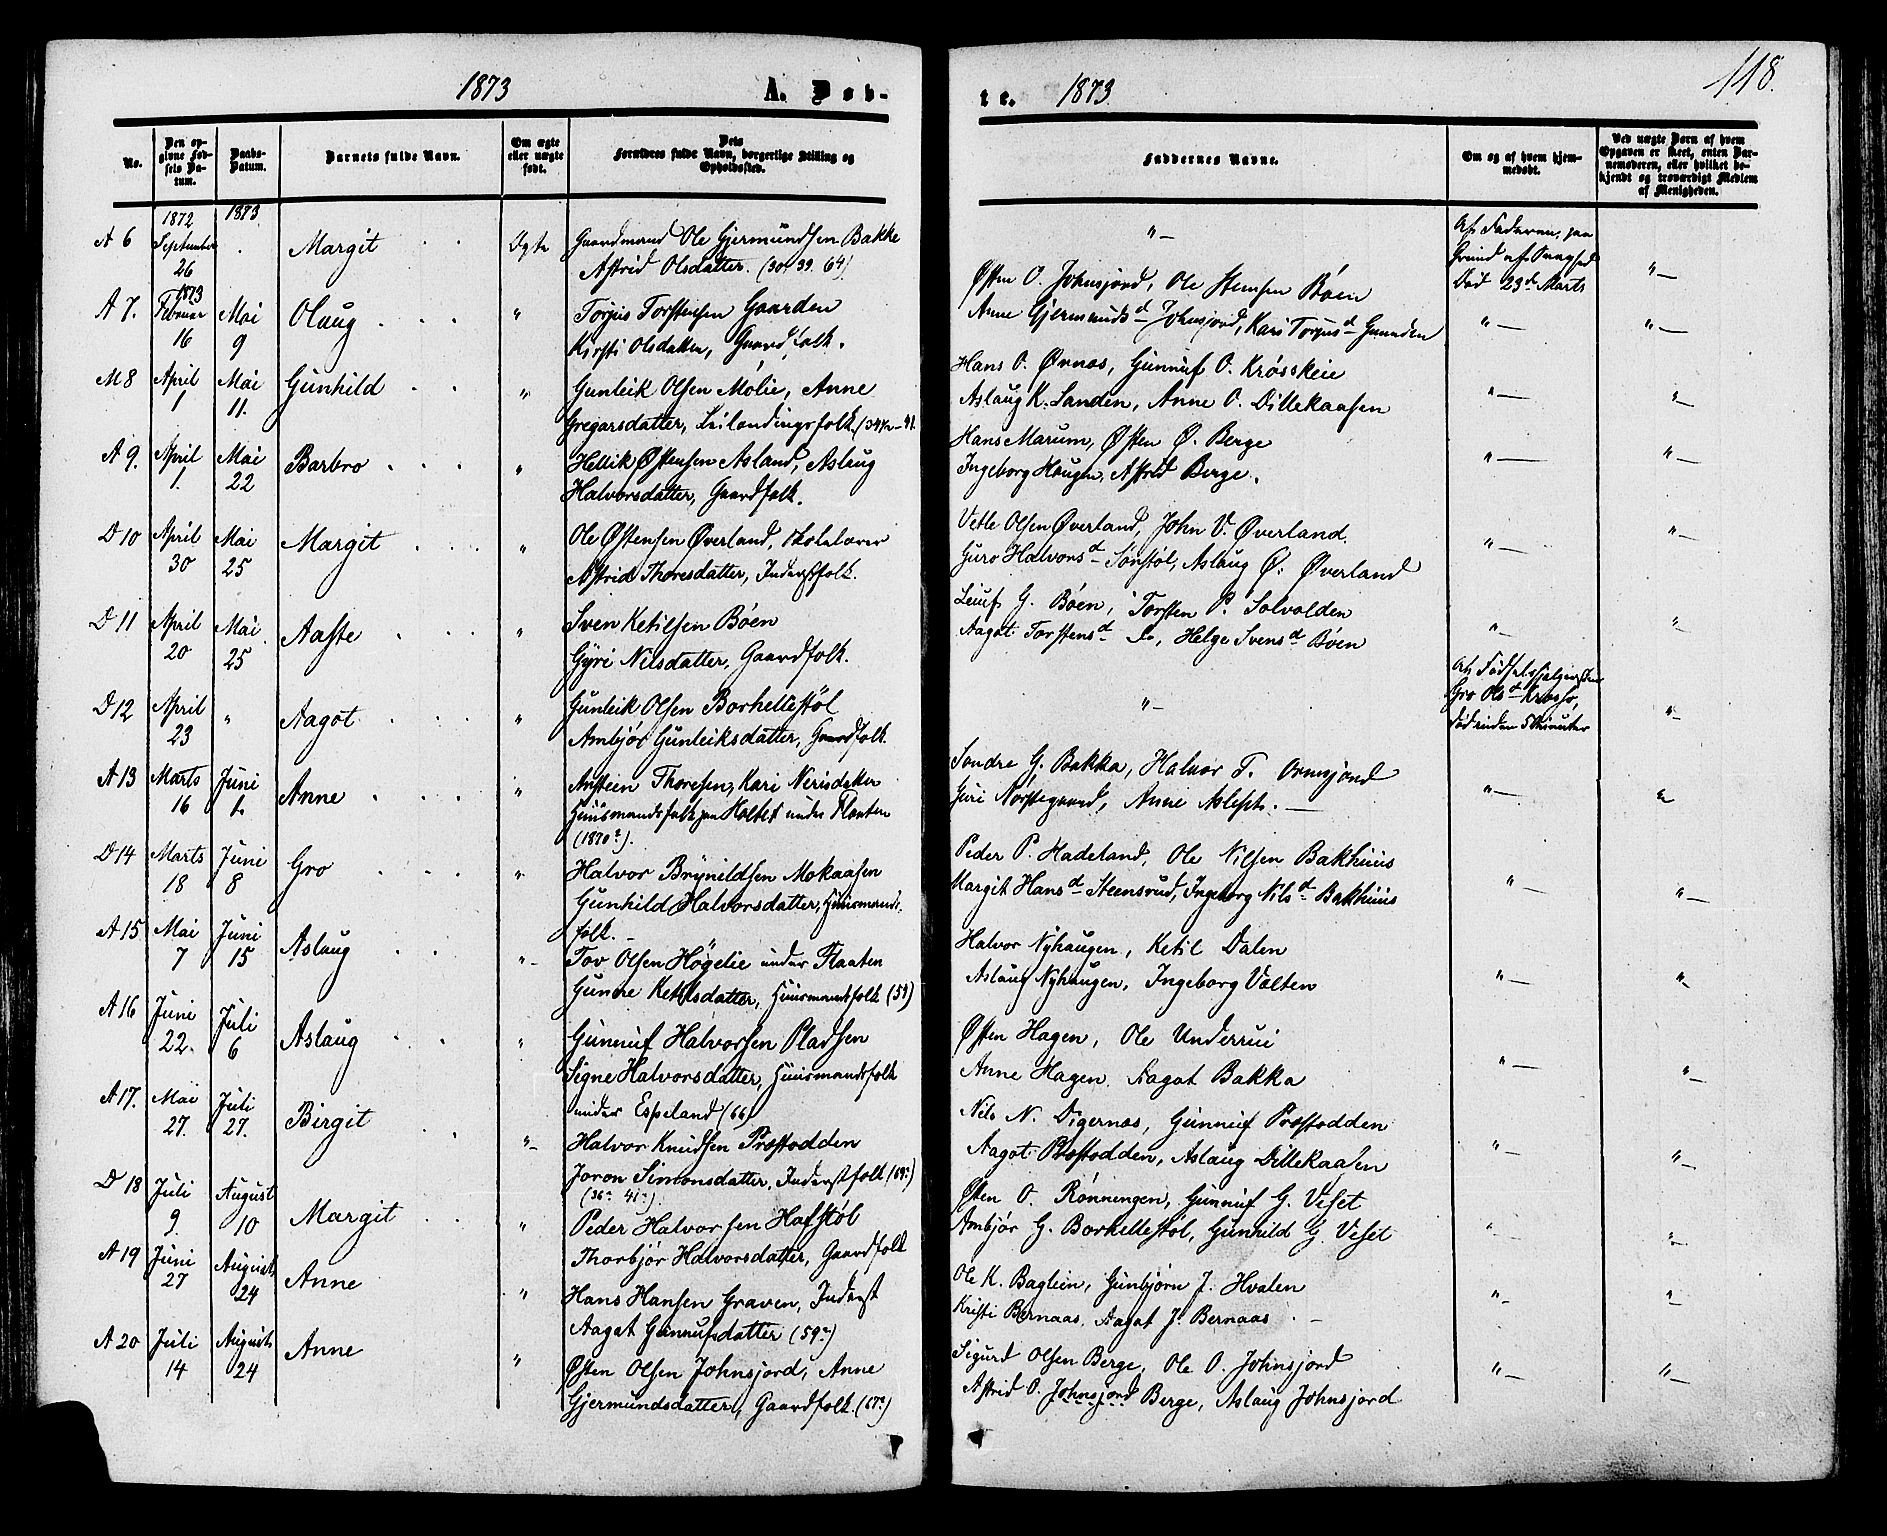 1873 A. Døb-
No.
Den op-
givne Fød-
sels Da-
tum.
Daabs-
Datum.
Barnets fulde Navn.
Om ægte
eller uægte
født.
Dets
Forældres fulde Navn, borgerlige Stilling og
Opholdssted.
A 6 1872 September 26 1873 Margit Ægte
Gaardmand Ole Gjermundsen Bakke
Astrid Olsdatter. (30. 39. 64)
A 7. 1873 Februar 16 Mai 9 Olaug "
Torjus Torstensen Gaarden
Kirsti Olsdatter, Gaardfolk.
M 8 April 1 Mai 11. Gunhild "
Gunleik Olsen Molie, Anne
Gregarsdatter, Leilændingsfolk
A 9. April 1. Mai 22 Barbro "
Hellik Østensen Asland, Aslaug
Halvorsdatter, Gaardfolk.
D 10 April 30 Mai 25 Margit "
Ole Østensen Øverland, Skolelærer
Astrid Thoresdatter, Inderstfolk.
D 11 April 20 Mai 25 Aaste "
Sven Ketilsen Böen
Gyri Nilsdatter, Gaardfolk.
D 12 April 23 " Aagot "
Gunleik Olsen Borhellestöl
Ambjör Gunleiksdatter, Gaardfolk
A 13 Marts 16 Juni 1. Anne "
Anstein Thoresen, Kari Nerisdatter
Huusmandsfolk paa Haltet under Flaaten
(1870).
D 14 Marts 18 Juni 8 Gro "
Halvor Brynildsen Mokaasen
Gunhild Halvorsdatter, Huusmands-
folk.
A 15 Mai 7 Juni 15 Aslaug "
Tov Olsen Høgelie under Flaaten
Gunne Ketilsdatter, Huusmandsfolk (59)
A 16 Juni 22. Juli 6 Aslaug "
Gunnuf Halvorsen Pladsen
Signe Halvorsdatter, Huusmandsfolk
under Espeland (66)
A 17. Mai 27. Juli 27. Birgit "
Halvor Knudsen Præstodden
Joron Simonsdatter, Inderstfolk (69)
(36 41).
D 18 Juli 9. August 10 Margit "
Peder Halvorsen Hafstöl
Thorbjör Halvorsdatter, Gaardfolk
A 19 Juni 27 August 24 Anne "
Hans Hansen Graven, Inderst
Aagot Gunnufsdatter (59)
A 20 Juli 14 August 24 Anne "
Østen Olsen Johnsjord, Anne
Gjermundsdatter, Gaardfolk. (67)
te. 1873. 118.
Faddernes Navne.
Om og af hvem hjem-
medøbt.
Ved uægte Børn af hvem
Opgaven er skeet, enten Bar-
nemoderen, eller hvilket be-
kjendt og troværdigt Medlem
af Menigheden.
"
Af Faderen, paa
Grund af Svaghed
Død 23d Marts
"
Østen O. Johnsjord, Ole Stensen Böen
Anne Gjermundsd Johnsjord, Kari Torjusd Gaarden
" "
Hans O. Ørnes, Gunnuf O. Krøsskeie
Aslaug K. Landen, Anne O. Dillekaasen
" "
Hans Marum, Østen Ø. Berge
Ingeborg Haugen, Astrid Berge.
" "
Vetle Olsen Øverland, John V. Øverland.
Guro Halvorsd Sønstöl, Aslaug Ø. Øverland
" "
Leiuf G. Böen, Torsten P. Solvolden
Aagot Torstensd Do, Helge Svensd Böen
" "
"
Af Fødselshjælpersken
Gro Olsd Krosso,
død inden 5 Minuter
"
Sondre G. Bakka, Halvor T. Ormsjord
Guri Norstegaard, Anne Aslepts.
" "
Peder P. Hadeland, Ole Nilsen Bakhuus
Margit Hansd Steensrud, Ingeborg Nilsd Bakhuus
" "
Halvor Nyhaugen, Ketil Dalen
Aslaug Nyhaugen, Ingeborg Valten
" "
Østen Hagen, Ole Underrui
Anne Hagen, Aagot Bakka
" "
Nils N. Digernæs, Gunnuf Præstodden
Aagot Præstodden, Aslaug Dillekaasen
" "
Østen O. Rønningen, Gunnuf G. Viset
Ambjör G. Borhellestöl, Gunhild G. Viset
" "
Ole K. Baglein, Gunbjørn J. Hvalen
Kristi Bernaas, Aagot J. Bernaas
" "
Sigurd Olsen Berge, Ole O. Johnsjord
Astrid O. Johnsjord Berge, Aslaug Johnsjord
" "